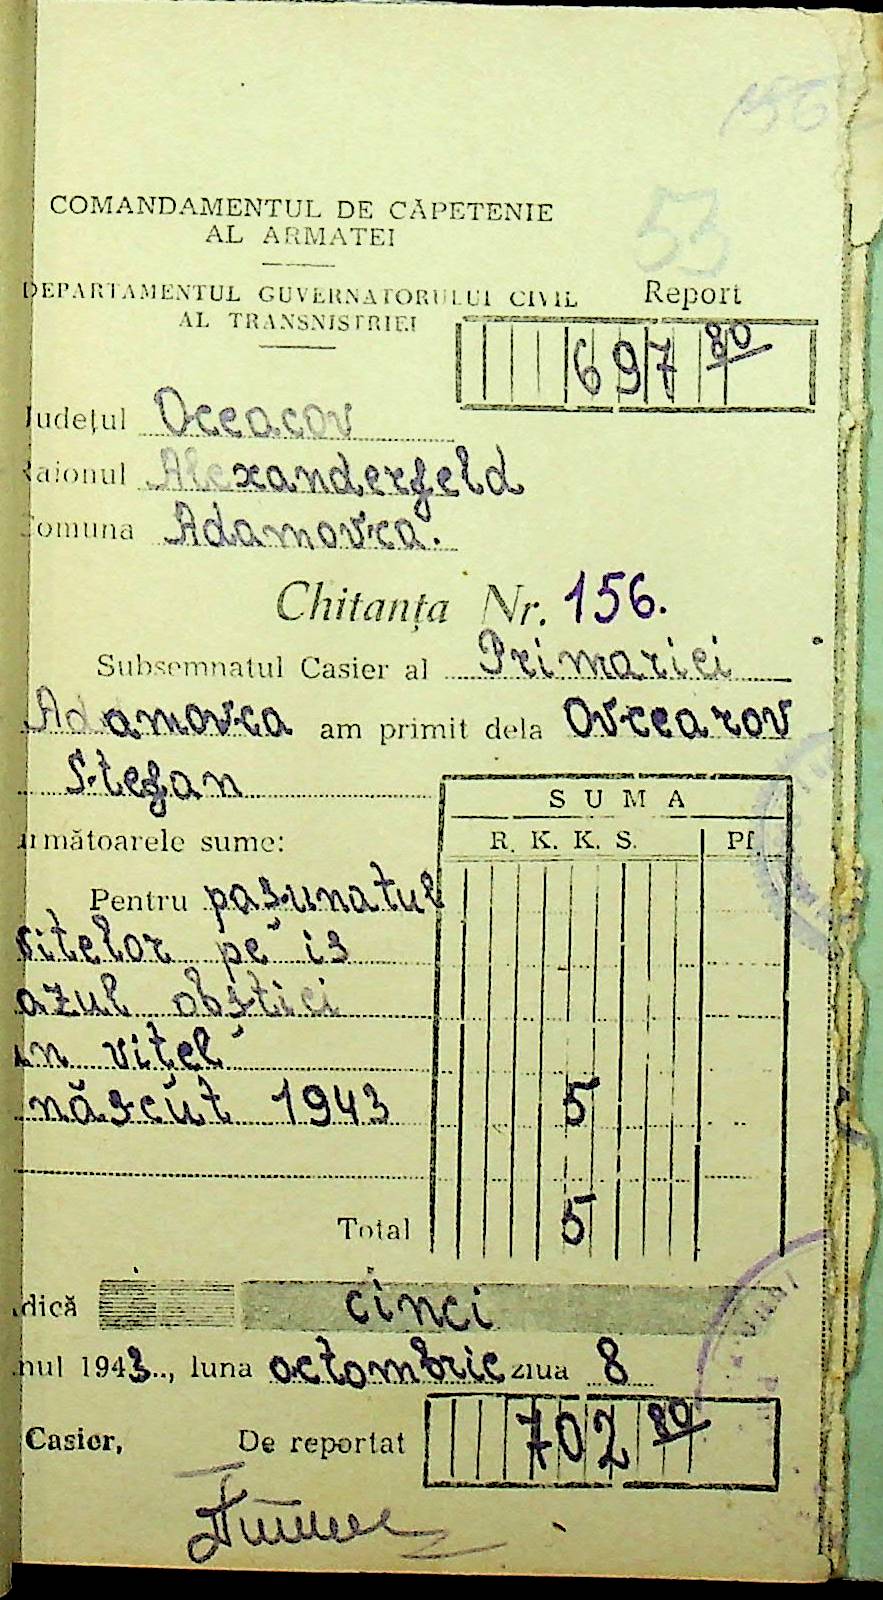 156
53
COMANDAMENTUL DE CĂPETENIE
AL ARMATEI
DEPARTAMENTUL GUVERNATORULUI CIVIL
AL TRANSNISTRIEI
Report
697 80
Județul Oceacov
Raionul Alexanderfeld
Comuna Adamovca.
Chitanța Nr. 156.
Subsemnatul Casier al Primariei
Adamovca am primit dela Ovcearov
Stefan
următoarele sume:
SUMA
R. K. K. S. Pf.
Pentru pasunatul
vitelor pe is
azul obstiei
un vitel
născut 1943 5
Total 5
adică cinci
anul 1943, luna octombrie ziua 8
Casier, De reportat 702 80